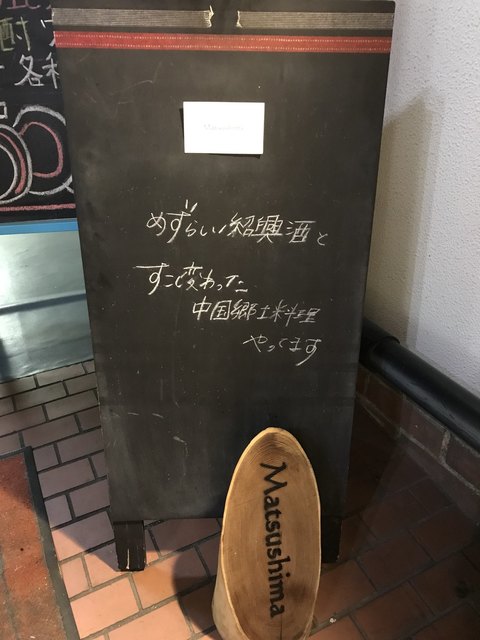 酎
各種
Matsushima
めずらしい紹興酒と
すこし変わった
中国郷土料理
やってます
Matsushima